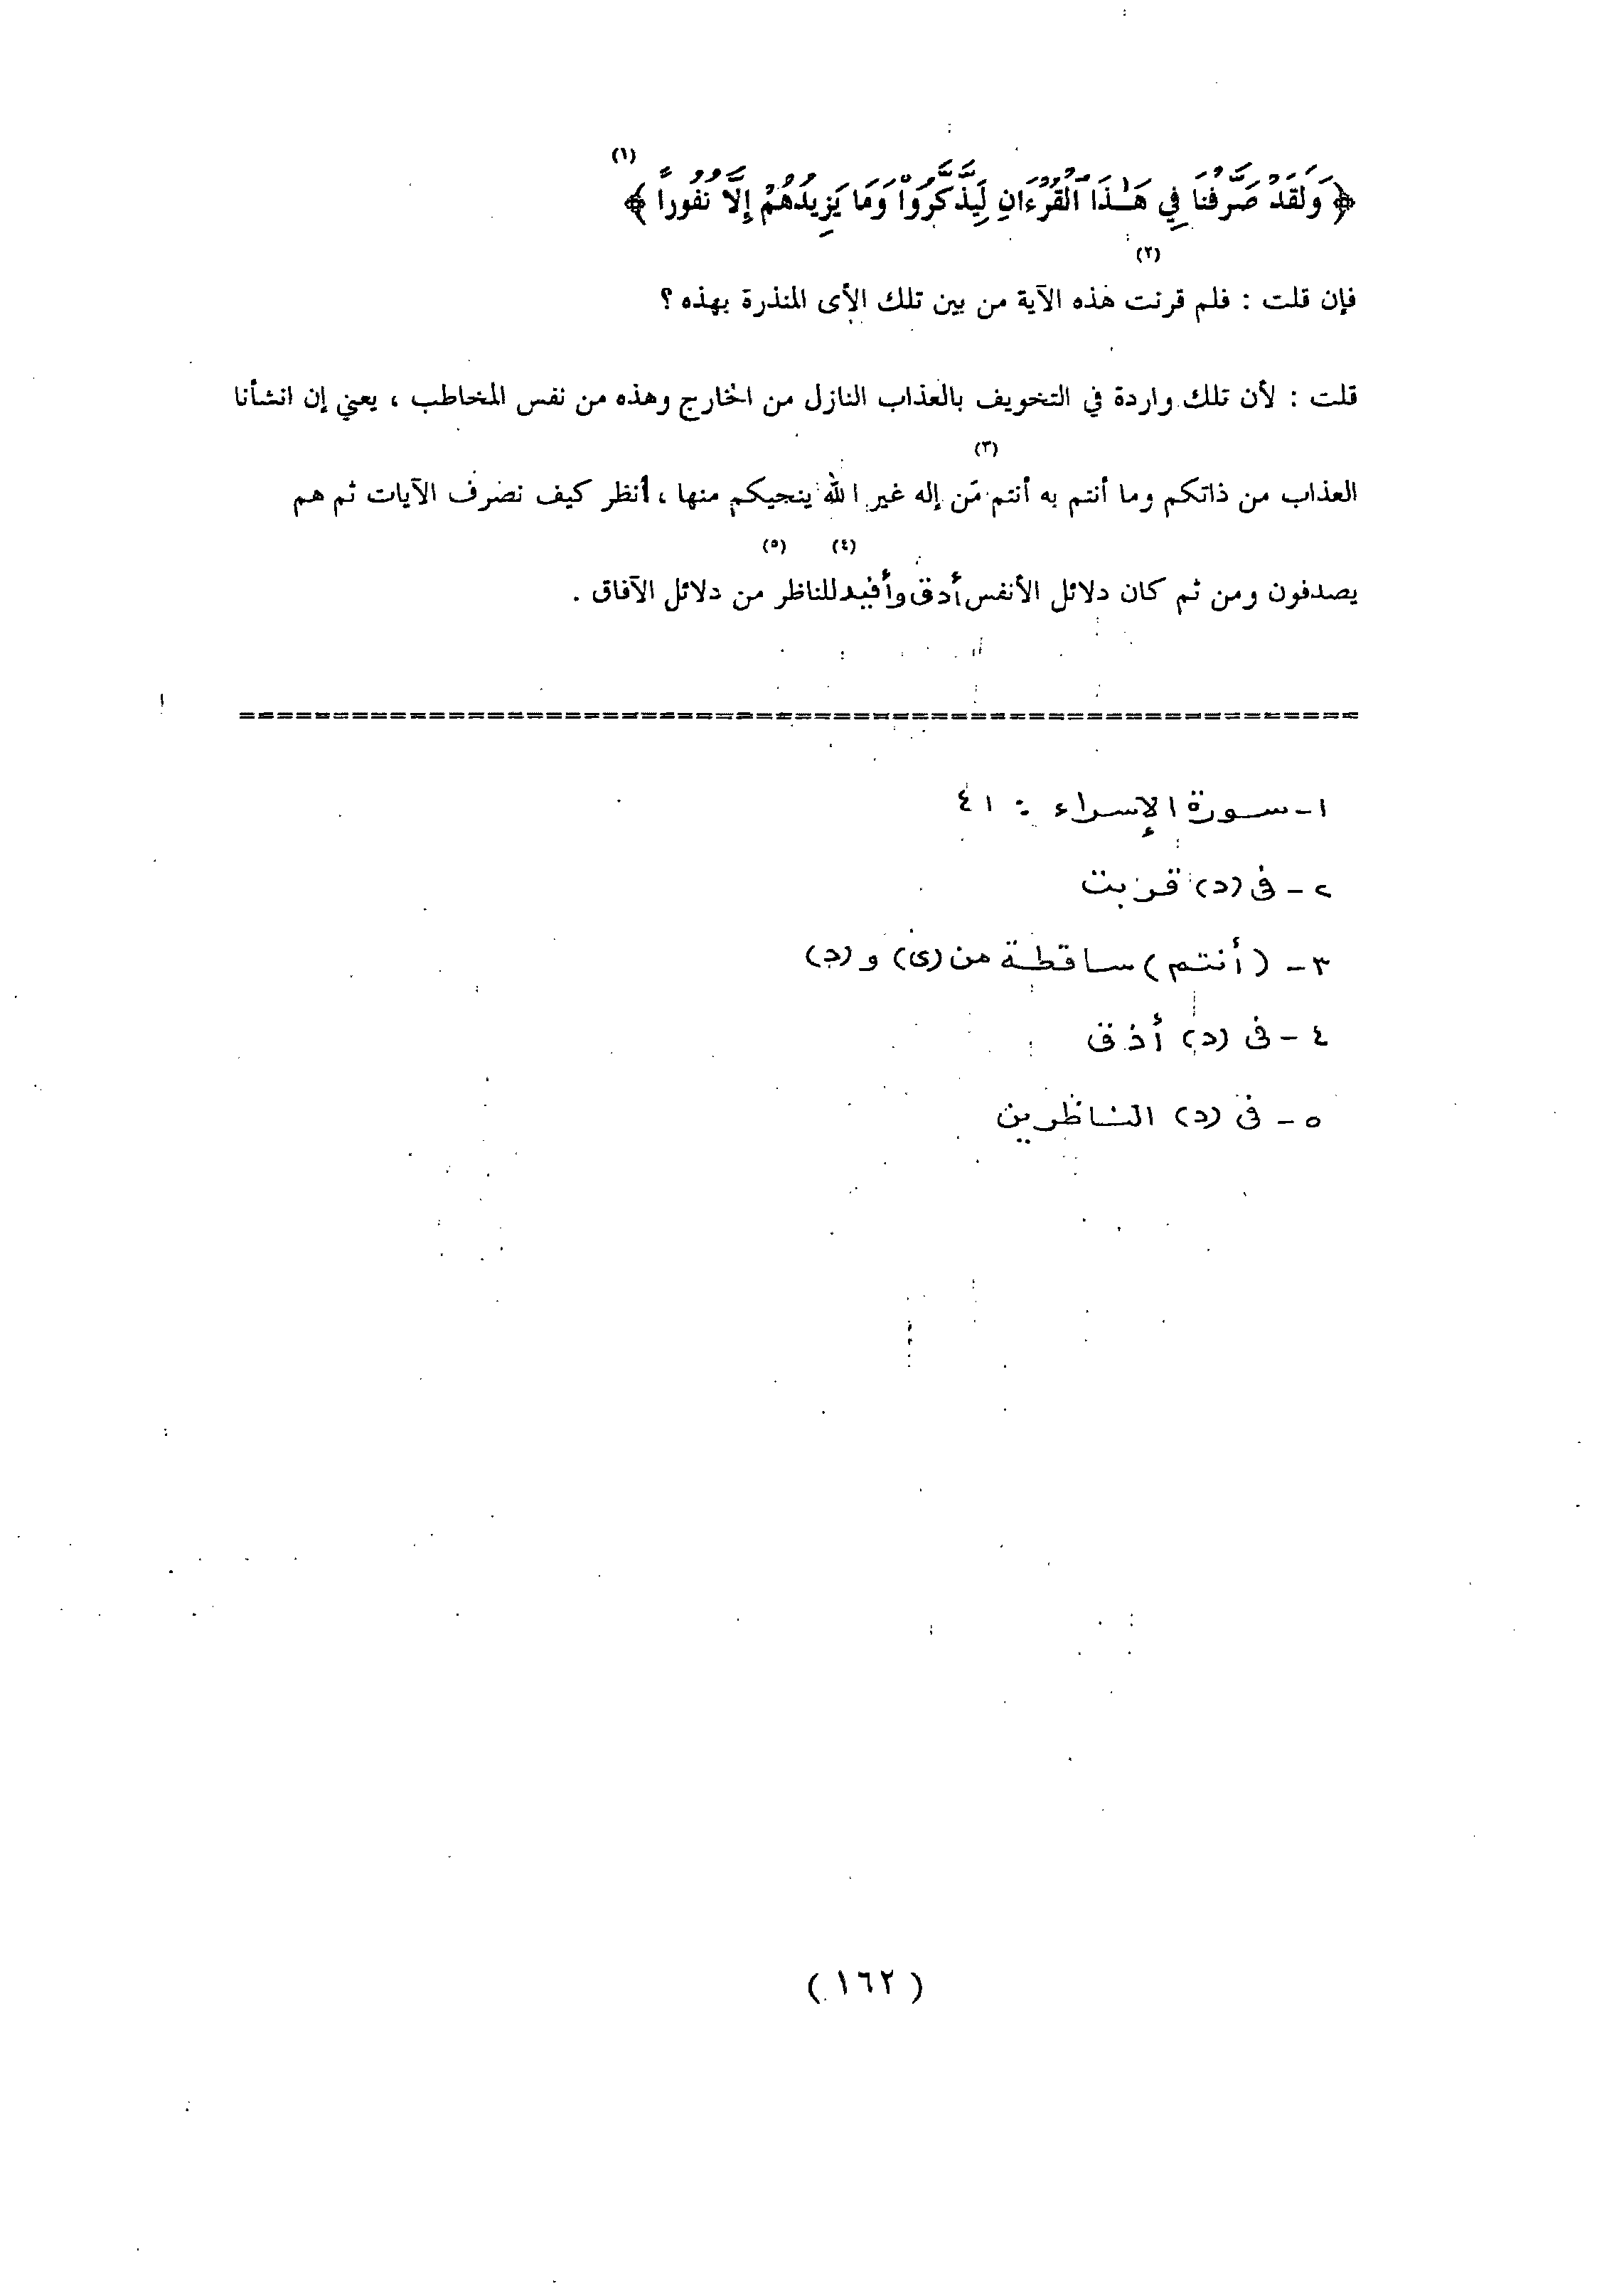 ﴿ وَلَقَدْ صَرَّفْنَا فِي هَـٰذَا الْقُرْءَانِ لِيَذَّكَّرُوا۟ وَمَا يَزِيدُهُمْ إِلَّا نُفُوراً ﴾ (١)
فإن قلت : فلم قرنت (٢) هذه الآية من بين تلك الأى المنذرة بهذه ؟
قلت : لأن تلك واردة في التخويف بالعذاب النازل من الخارج وهذه من نفس المخاطب ، يعني إن انشأنا
العذاب من ذاتكم وما أنتم به أنتم (٣) مَن إله غير الله ينجيكم منها ، أنظر كيف نصرف الآيات ثم هم
يصدفون ومن ثم كان دلائل الأنفس أدق (٤) وأفيد للناظر (٥) من دلائل الآفاق .
١ - سورة الإسراء : ٤١
٢ - فى (د) قربت
٣ - (أنتم) ساقطة من (ى) و (د)
٤ - فى (د) أذق
٥ - فى (د) الناظرين
( ١٦٢ )